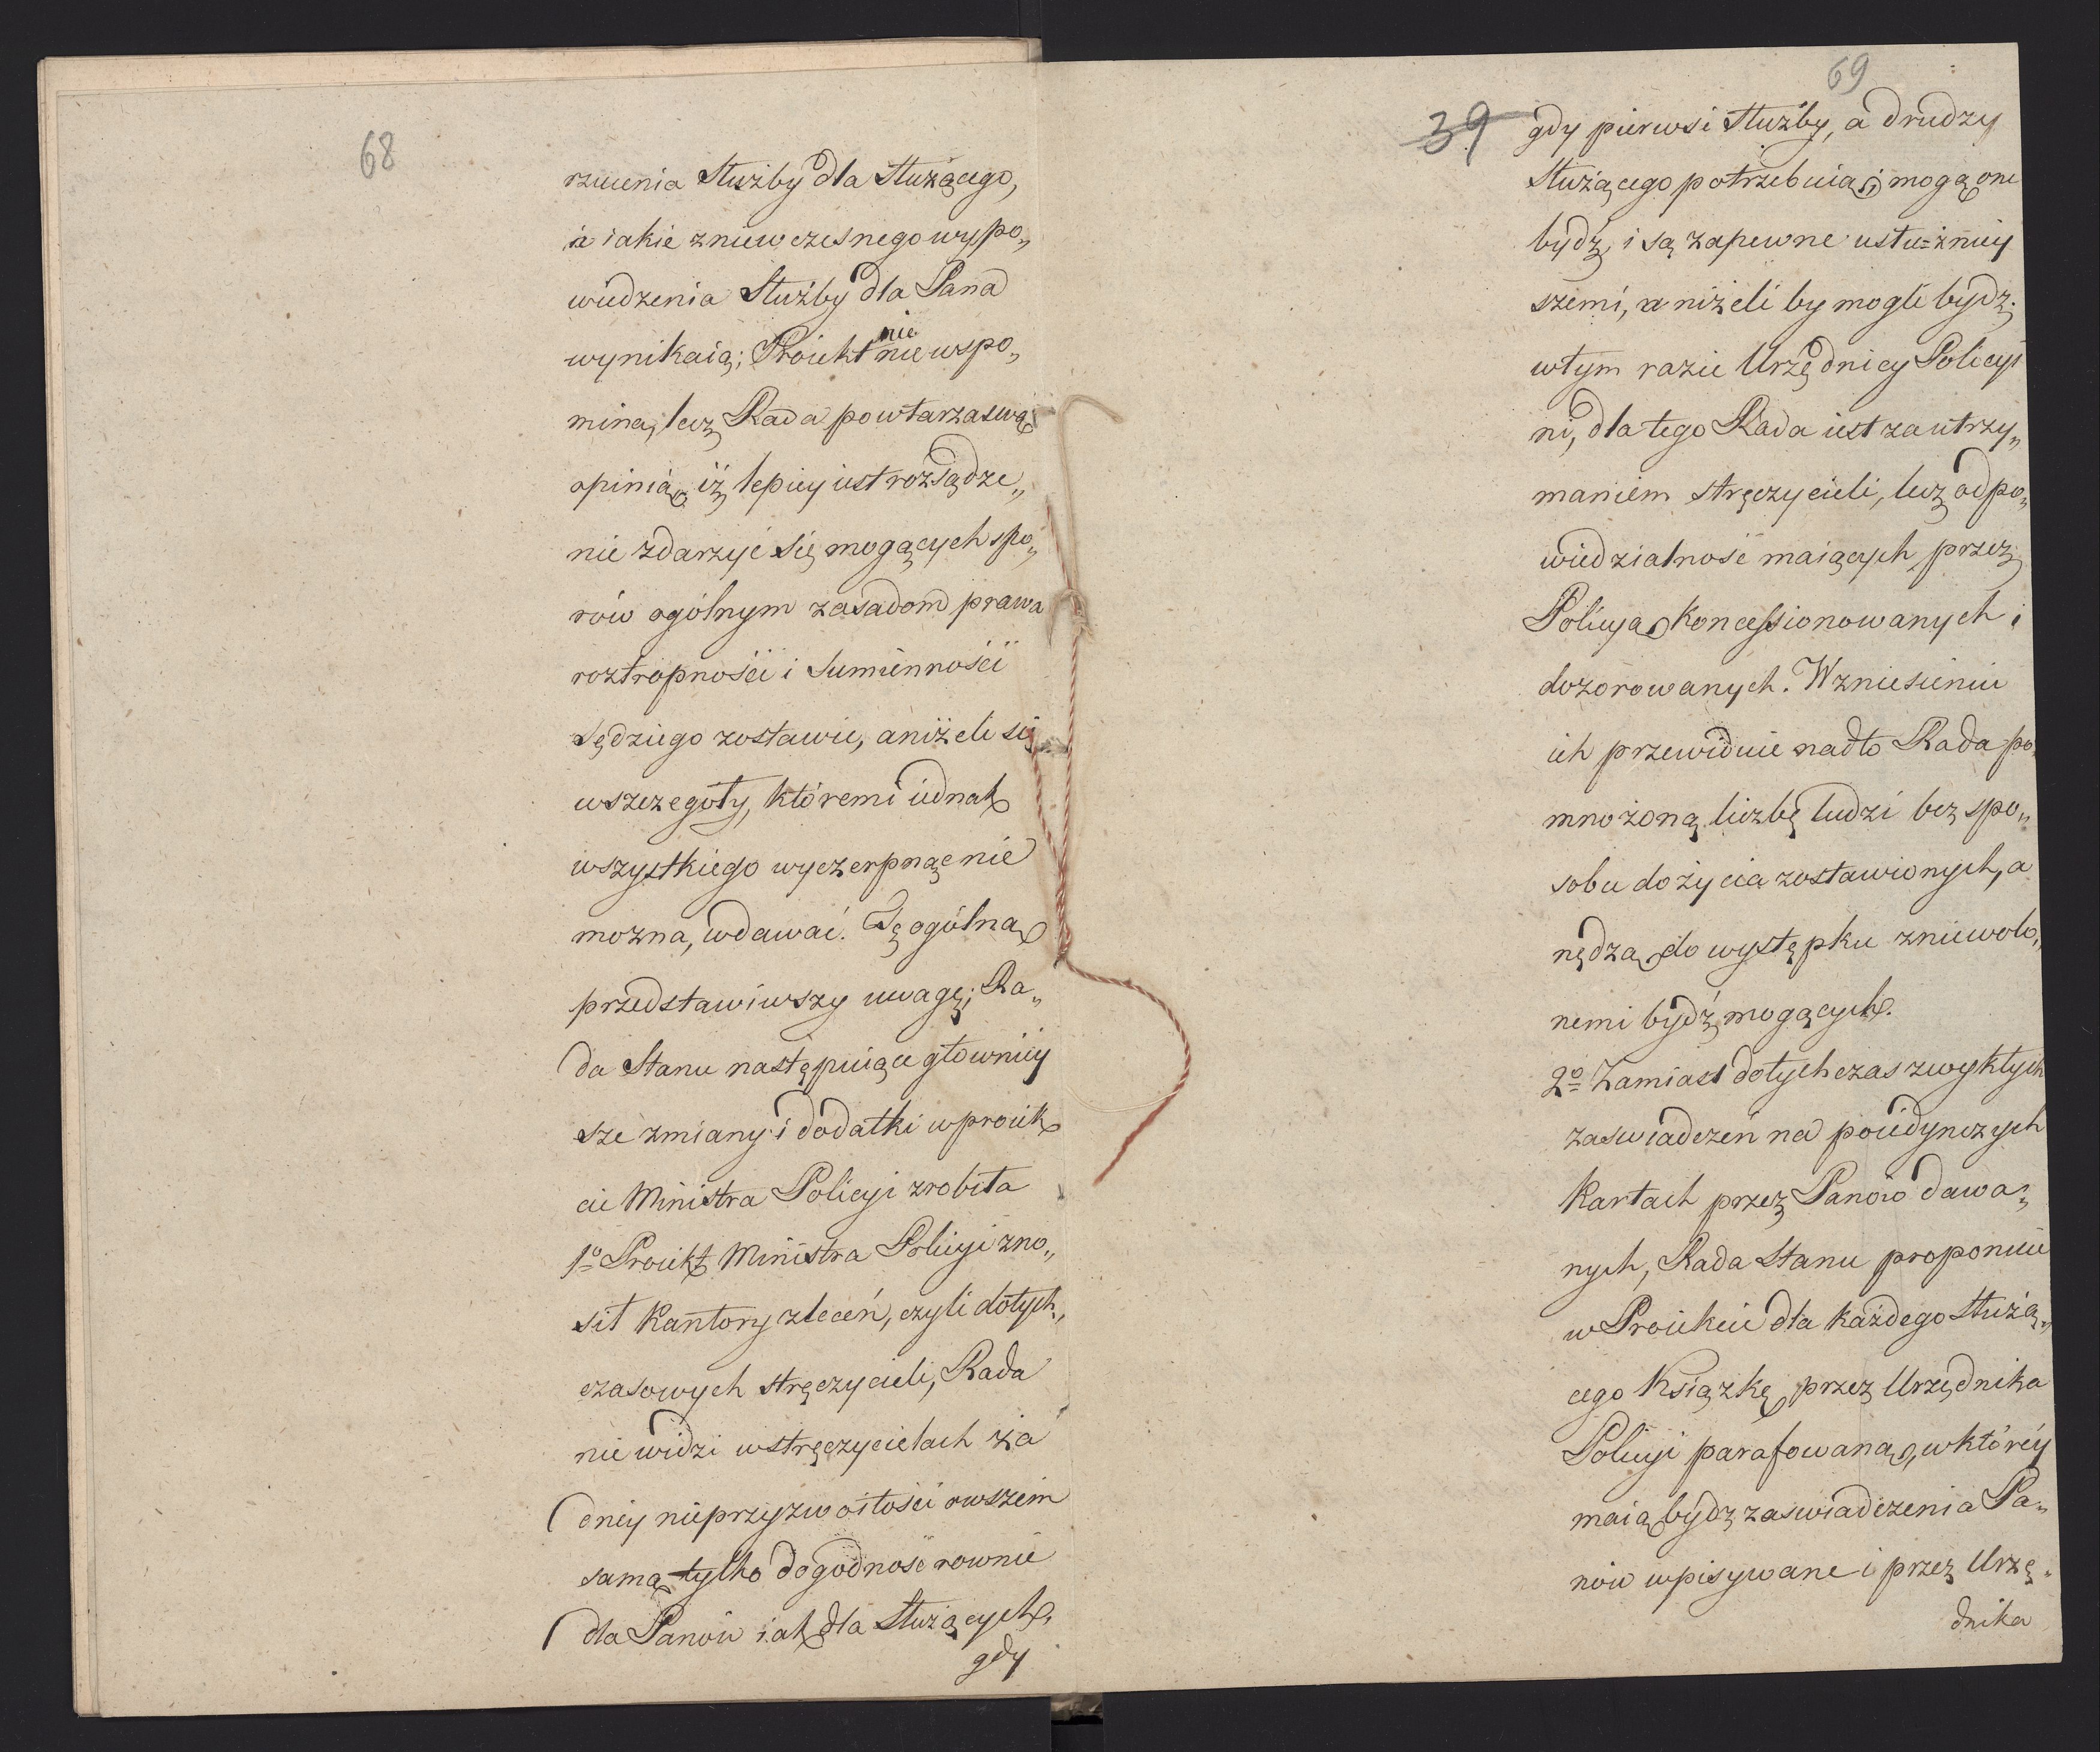 68
rzucenia Służby dla Służącego,
a iakie z niewczesnego wypo„
wiedzenia Służby dla Pana
wynikaią; Proiekt nie wspo„
nie
mina, lecz Rada powtarza swą
opinią, iż lepiey iest rozsądze„
nie zdarzyć się mogących spo„
rów ogólnym zasadom prawa
roztropności i Sumienności
Sędziego zostawić, aniżeli się
w szczegóły, któremi iednak
wszystkiego wyczerpnąć nie
można, wdawać. Tę ogólną
przedstawiwszy uwagę; Ra„
da Stanu następuiące główniey
sze zmiany i dodatki w proiek
cie Ministra Policyi zrobiła
1o Proiekt Ministra Policyi zno„
sił Kantory zleceń, czyli dotych„
czasowych stręczycieli, Rada
nie widzi w stręczycielach ża
dney nieprzyzwoitości owszem
samą tylko dogodność równie
dla Panów iak dla Służących,
gdy
69
39
gdy pierwsi Służby, a drudzy
Służącego potrzebuią; i mogą one
bydź, i są zapewne usłużniey
szemi, aniżeli by mogli bydź
w tym razie Urzędnicy Policyi
ni, dla tego Rada iest za utrzy„
maniem stręczycieli, lecz odpo„
wiedzialność maiących, przez
Policyą Koncessionowanych i
dozorowanych. W zniesieniu
ich przewiduie nadto Rada po
mnożoną liczbę ludzi bez spo„
sobu do życia zostawionych, a
nędzą do występku zniewolo„
nemi bydź mogących.
2o Zamiast dotychczas zwykłych
zaświadczeń na poiedynczych
Kartach przez Panów dawa„
nych, Rada Stanu proponuie
w Proiekcie dla każdego Służą„
cego Książkę przez Urzędnika
Policyi parafowaną, w którey
maią bydź zaświadczenia Pa„
nów wpisywane i przez Urzę„
dnika